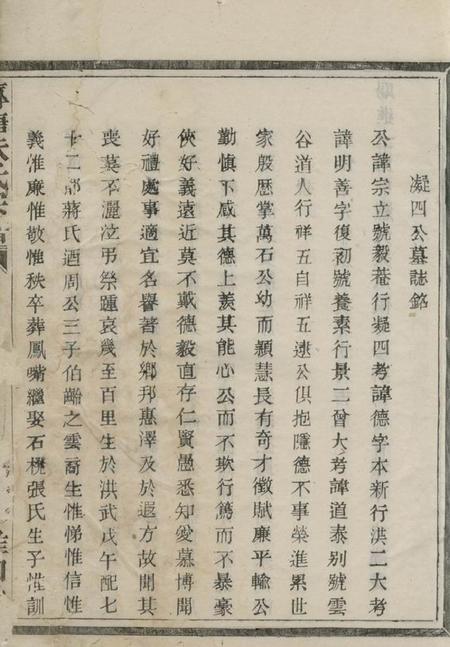 凝四公墓誌銘
公諱宗立號毅菴行凝四考諱德字本新行洪二大考
諱明善字復初號養素行景二曾大考諱道泰別號雲
谷道人行祥五自祥五逮公俱抱隱德不事榮進累世
家殷歷掌萬石公幼而穎慧長有奇才徵賦廉平輸公
勤慎下感其德上羨其能心公而不欺行篤而不暴豪
俠好義遠近莫不戴德毅直存仁賢愚悉知愛慕博聞
好禮處事適宜名譽著於鄉邦惠澤及於遐方故聞其
喪莫不灑泣弔祭踵哀幾至百里生於洪武戊午配七
十二都蔣氏迺周公三子伯齡之雲裔生惟悌惟信惟
義惟廉惟敬惟秩卒葬鳳嘴繼娶石桃張氏生子性訓